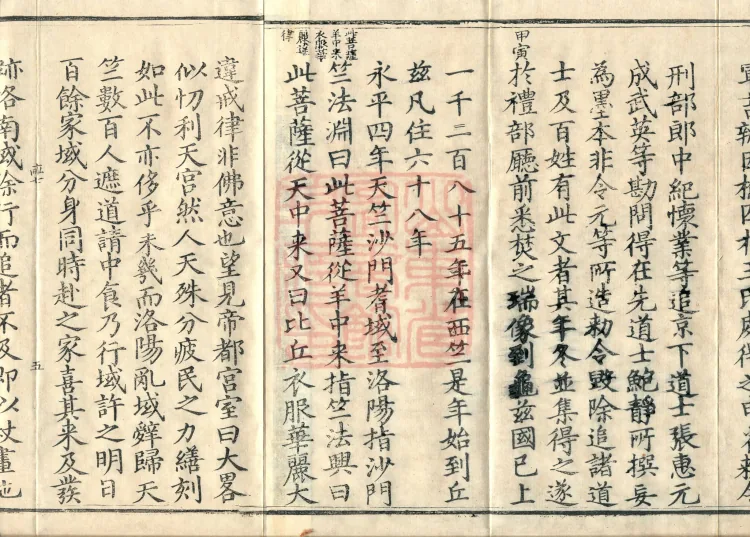 刑部郎中紀懷業等追京下道士張惠元
成武英等勘問得在先道士鮑靜所撰妄
為墨本非令元等所造勅令毀除追諸道
士及百姓有此文者其年冬並集得之遂
甲寅
於禮部廳前悉焚之瑞像到龜茲國已上
一千二百八十五年在西竺是年始到丘
茲凡住六十八年
永平四年天竺沙門耆域至洛陽指沙門
竺法淵曰此菩薩從羊中来指竺法興曰
此菩薩
羊中来
衣服華
麗違
律
此菩薩從天中来又曰比丘衣服華麗大
違戒律非佛意也望見帝都宮室曰大畧
似忉利天宫然人天殊分疲民之力繕刻
如此不亦侈乎未幾而洛陽亂域辭歸天
竺數百人遮道請中食乃行域許之明日
百餘家域分身同時赴之家喜其来及發
五
跡洛南域徐行而追者不及即以杖畫地